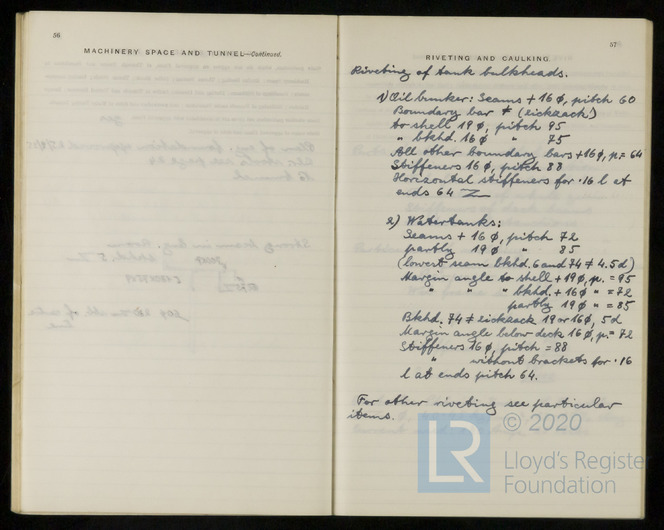 56
MACHINERY SPACE AND TUNNEL—Continued.
57
RIVETING AND CAULKING.
Riveting of tank bulkheads.
1) Oil bunker: Seams ‡ 16 ø, pitch 60
Boundary bar ‡ (zickzack!)
to shell 19 ø, pitch 95
" bkhd. 16 ø 75
All other boundary bars ‡ 16 ø, p = 64
Stiffeners 16 ø, pitch 88
Horizontal stiffeners for ·16 l at
ends 64
2) Watertanks:
Seams ‡ 16 ø, pitch 72
partly 19 ø " 85
(lowest seam bkhd. 6 and 74 ‡ 4.5 d)
Margin angle to shell ‡ 19 ø, p. = 95
" " " bkhd. ‡ 16 ø " = 72
partly 19 ø " = 85
Bkhd. 74 ‡ zickzack 19 or 16 ø, 5d
Margin angle below deck 16 ø, p. = 72
Stiffeners 16 ø, pitch = 88
" without brackets for ·16
l at ends pitch 64.
For other riveting see particular
items.
LR
© 2020
Lloyd's Register
Foundation